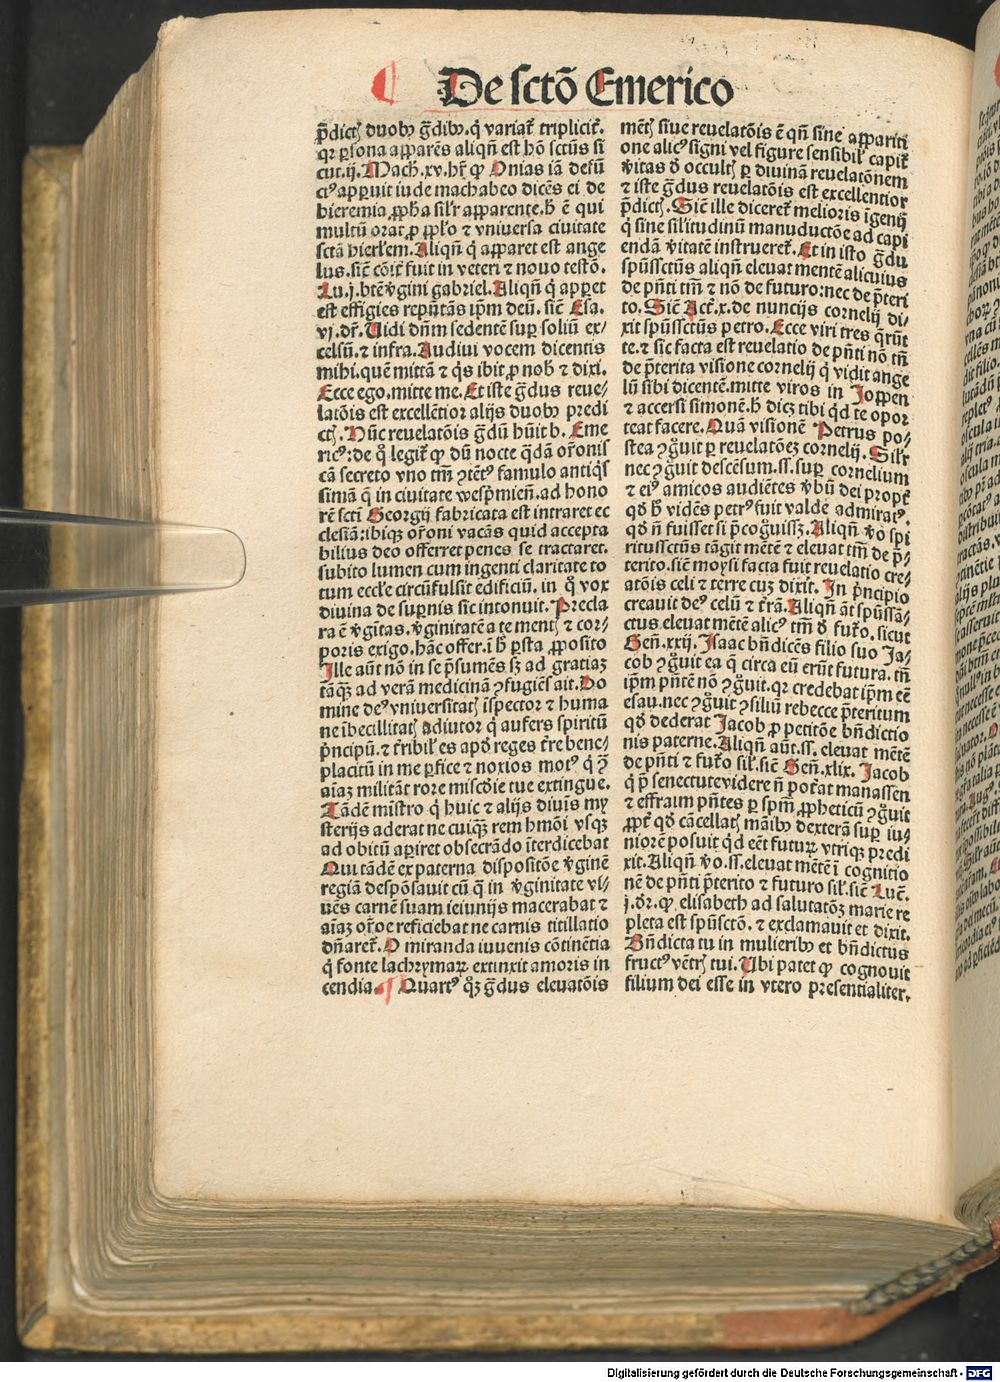 De sctō Emerico
p̄dictꝭ duobꝰ ḡdibꝰ. q̇ variat᷑ triplicit᷑.
qꝛ ꝑsona apparēs aliqn̄ est hō sctūs si
cut. ij. Mach. xv. hr̄ ꝙ Onias iā defū
ctꝰ apꝑuit iude machabeo dicēs ei de
hieremia ꝓpha sil'r apparente. h̄ ē qui
multū orat ꝓ pp̄lo ⁊ vniuersa ciuitate
sctā hierl'em. Aliqn̄ q̇ apparet est ange
lus. sic̄ cōit᷑ fuit in veteri ⁊ nouo testō.
Lu. j. btē v̄gini gabriel. Aliqn̄ q̇ apꝑet
est effigies rep̄ntās ip̄m deū. sic̄ Esa.
vj. dr̄. Uidi dn̄m sedentē suꝑ soliū ex⸗
celsū. ⁊ infra. Audiui vocem dicentis
mihi. quē mittā ⁊ q̇s ibit ꝓ nob̄ ⁊ dixi.
Ecce ego. mitte me. Et iste ḡdus reue⸗
latōis est excellētior alijs duobꝰ predi
ctꝭ. Hūc reuelatōis ḡdū hūit b. Eme
ricꝰ: de q̊ legit᷑ ꝙ dū nocte q̇dā or̄onis
cā secreto vno tm̄ ꝯtētꝰ famulo antiq̇s
simā q̇ in ciuitate wesp̄mien̄. ad hono
rē scti Georgij fabricata est intraret ec
clesiā: ibiqꝫ or̄oni vacās quid accepta
bilius deo offerret penes se tractaret.
subito lumen cum ingenti claritate to
tum eccl'e circūfulsit edificiū. in q̊ vox
diuina de suꝑnis sic intonuit. Precla
ra ē v̄gītas. v̄ginitatē a te mentꝭ ⁊ cor⸗
poris exigo. hāc offer. ī h̄ ꝑsta ꝓposito
Ille aūt nō in se p̄sumēs sꝫ ad gratiaꝫ
tāqꝫ ad verā medicinā ꝯfugiēs ait. Do
mine deꝰ vniuersitatꝭ īspector ⁊ huma
ne ībecillitatꝭ adiutor q̇ aufers spiritū
p̄ncipū. ⁊ t̄ribil' es apđ reges t̄re bene⸗
placitū in me ꝑfice ⁊ noxios motꝰ q̇ ꝯ̄
aīaꝫ militāt rore miscd̄ie tue extingue.
Tādē mīstro q̇ huic ⁊ alijs diuīs my
sterijs aderat ne cuiqꝫ rem hmōi vsqꝫ
ad obitū apīret obsecrādo īterdicebat
Qui tādē ex paterna dispositōe v̄ginē
regiā despōsauit cū q̇ in v̄ginitate vi⸗
uēs carnē suam ieiunijs macerabat ⁊
aīaꝫ or̄oe reficiebat ne carnis titillatio
dn̄aret᷑. O miranda iuuenis cōtinētia
q̇ fonte lachrymaꝝ extinxit amoris in
cendia. ¶ Quartꝰ q̊ꝫ ḡdus eleuatōis
mētꝭ siue reuelatōis ē qn̄ sine appariti
one alicꝰ signi vel figure sensibil' capit᷑
v̄itas đ occultꝭ ꝑ diuinā reuelatōnem
⁊ iste ḡdus reuelatōis est excellentior
p̄dictꝭ. Sic̄ ille diceret᷑ melioris īgenij
q̇ sine sil'itudinū manuductōe ad capi
endā v̄itatē instrueret᷑. Et in isto ḡdu
spūssctūs aliqn̄ eleuat mentē alicuius
de pn̄ti tm̄ ⁊ nō de futuro: nec de p̄teri
to. Sic̄ Act. x. de nuncijs cornelij di⸗
xit spūssctūs petro. Ecce viri tres q̄rūt
te. ⁊ sic facta est reuelatio de pn̄ti nō tm̄
de p̄terita visione cornelij q̇ vidit ange
lū sibi dicentē. mitte viros in Joppen
⁊ accersi simonē. h̄ dicꝫ tibi q̇d te opor
teat facere. Quā visionē Petrus po⸗
stea ꝯg̊uit ꝑ reuelatōeꝫ cornelij. Sil'r
nec ꝯg̊uit descēsum. ss. suꝑ cornelium
⁊ eiꝰ amicos audiētes v̄bū dei propt᷑
qđ h̄ vidēs petrꝰ fuit valde admiratꝰ.
qđ n̄ fuisset si p̄cog̊uissꝫ. Aliqn̄ v̄o spi
ritussctūs tāgit mētē ⁊ eleuat tm̄ de p̄⸗
terito. sic̄ moysi facta fuit reuelatio cre⸗
atōis celi ⁊ terre cuꝫ dixit. In p̄ncipio
creauit deꝰ celū ⁊ t̄rā. Aliqn̄ āt spūssā⸗
ctus eleuat mētē alicꝰ tm̄ đ fut᷑o. sicut
Gen̄. xxvij. Isaac bn̄dicēs filio suo Ja⸗
cob ꝯg̊uit ea q̄ circa eū erūt futura. tm̄
ip̄m pn̄tē nō ꝯg̊uit. qꝛ credebat ip̄m eē
esau. nec ꝯg̊uit ꝯsiliū rebecce p̄teritum
qđ dederat Jacob ꝓ petitōe bn̄dictio
nis paterne. Aliqn̄ aūt. ss. eleuat mētē
de pn̄ti ⁊ fut᷑o sil'. sic̄ Gen̄. xlix. Jacob
q̇ p̄ senectute videre n̄ poterat manassen
⁊ effraim pn̄tes ꝑ spm̄ ꝓpheticū ꝯg̊uit
ꝓpt᷑ qđ cācellatꝭ māibꝰ dexterā suꝑ iu⸗
niorē posuit q̇d eēt futuꝝ vtriqꝫ predi
xit. Aliqn̄ v̄o. ss. eleuat mētē ī cognitio
nē de pn̄ti p̄terito ⁊ futuro sil'. sic̄ Luc̄.
j. dr̄. ꝙ elisabeth ad salutatōꝫ marie re
pleta est spūsctō. ⁊ exclamauit et dixit.
Bn̄dicta tu in mulieribꝰ et bn̄dictus
fructꝰ vētrꝭ tui. Ubi patet ꝙ cognouit
filium dei esse in vtero presentialiter.
Digitalisierung gefördert durch die Deutsche Forschungsgemeinschaft - DFG